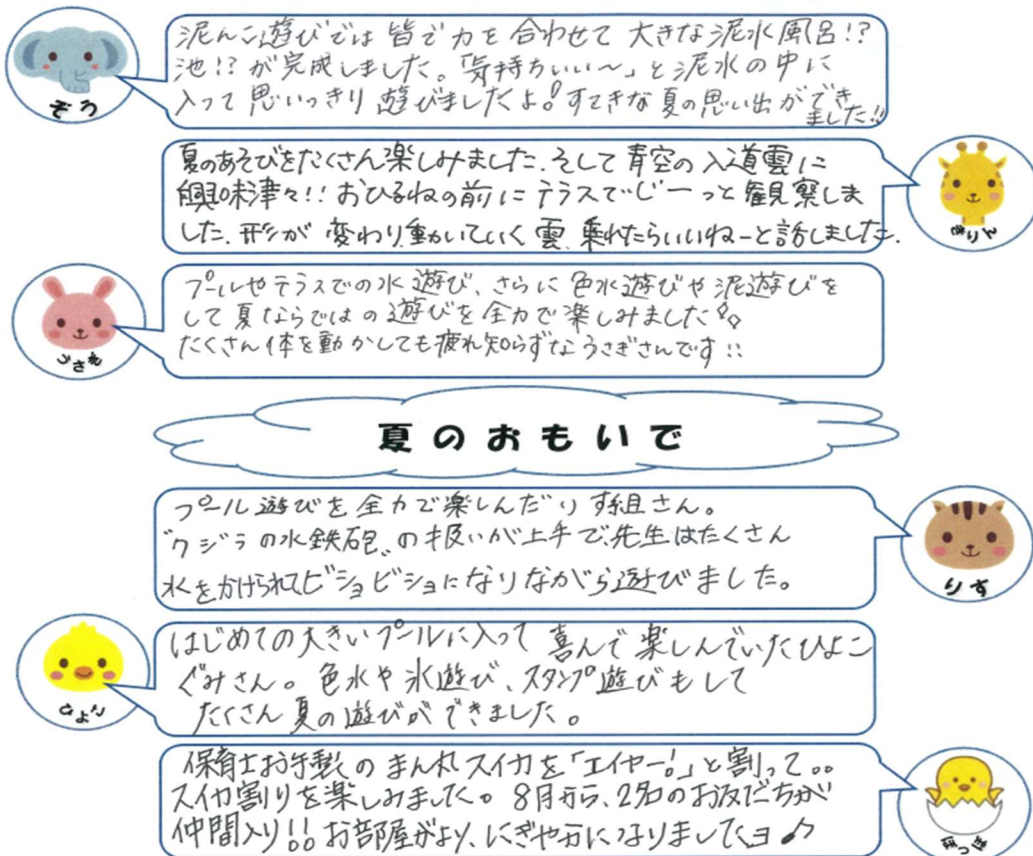 泥んこ遊びでは皆で力を合わせて大きな泥水風呂!?
池!?が完成しました。「気持ちいい〜」と泥水の中に
入って思いっきり遊びましたよ!すてきな夏の思い出ができ
ました!!
ぞう
夏のあそびをたくさん楽しみました。そして青空の入道雲に
興味津々!!おひるねの前にテラスでじーっと観察しま
した。形が変わり動いていく雲、乗れたらいいねーと話しました。
きりん
プールやテラスでの水遊び、さらに色水遊びや泥遊びを
して夏ならではの遊びを全力で楽しみました
たくさん体を動かしても疲れ知らずなうさぎさんです!!
うさぎ
夏のおもいで
プール遊びを全力で楽しんだりす組さん。
"クジラの水鉄砲"の扱いが上手で、先生はたくさん
水をかけられてビショビショになりながら遊びました。
りす
はじめての大きいプールに入って喜んで楽しんでいたひよこ
ぐみさん。色水や氷遊び、スタンプ遊びもして
たくさん夏の遊びができました。
ひよこ
保育士お手製のまん丸スイカを「エイヤー!」と割って。。
スイカ割りを楽しみました。8月から、2名のお友だちが
仲間入り!!お部屋がより、にぎやかになりましたヨ♪
ぴっぴ